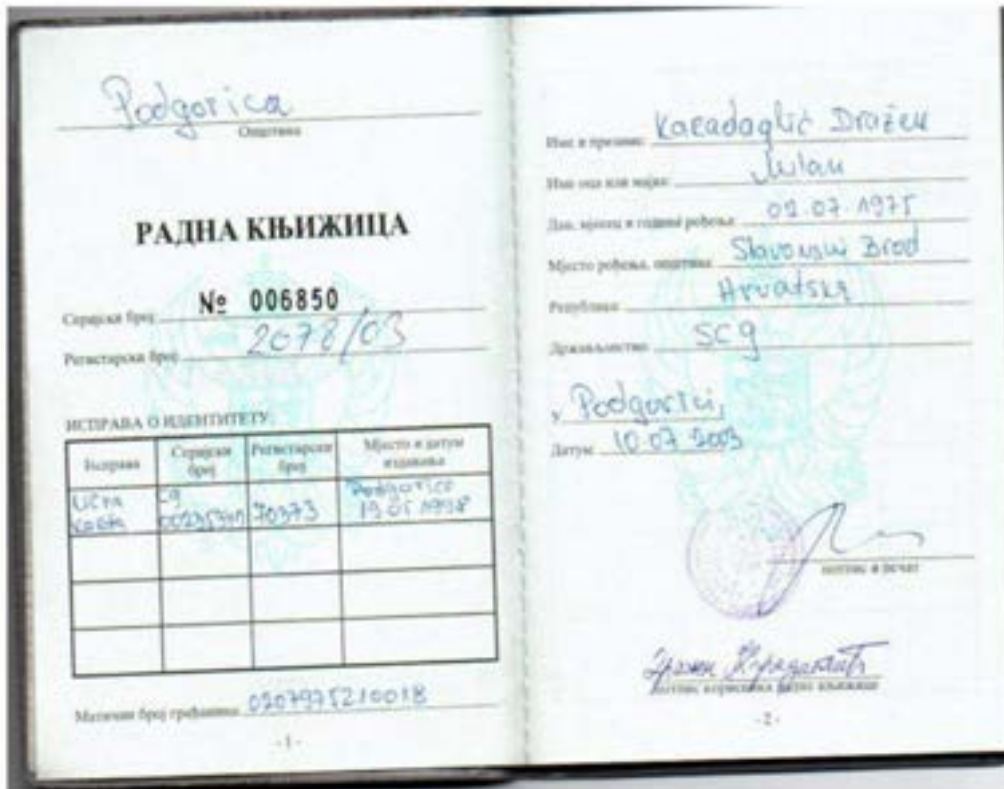 Podgorica
Општина
РАДНА КЊИЖИЦА
Серијски број № 006850
Регистарски број 2078/03
ИСПРАВА О ИДЕНТИТЕТУ:
Исправа Серијски број Регистарски број Мјесто и датум издавања
Lična karta cg 70373 Podgorica 19 05 1998
Матични број грађанина 0207975210018
-1-
Име и презиме: Karadaglić Dražen
Име оца или мајке: Milan
Дан, мјесец и година рођења 02.07.1975
Мјесто рођења, општина Slavonski Brod
Република Hrvatska
Држављанство scg
у Podgorici,
Датум 10.07.2003
потпис и печат
Дражен Карадаглић
потпис корисника радне књижице
-2-